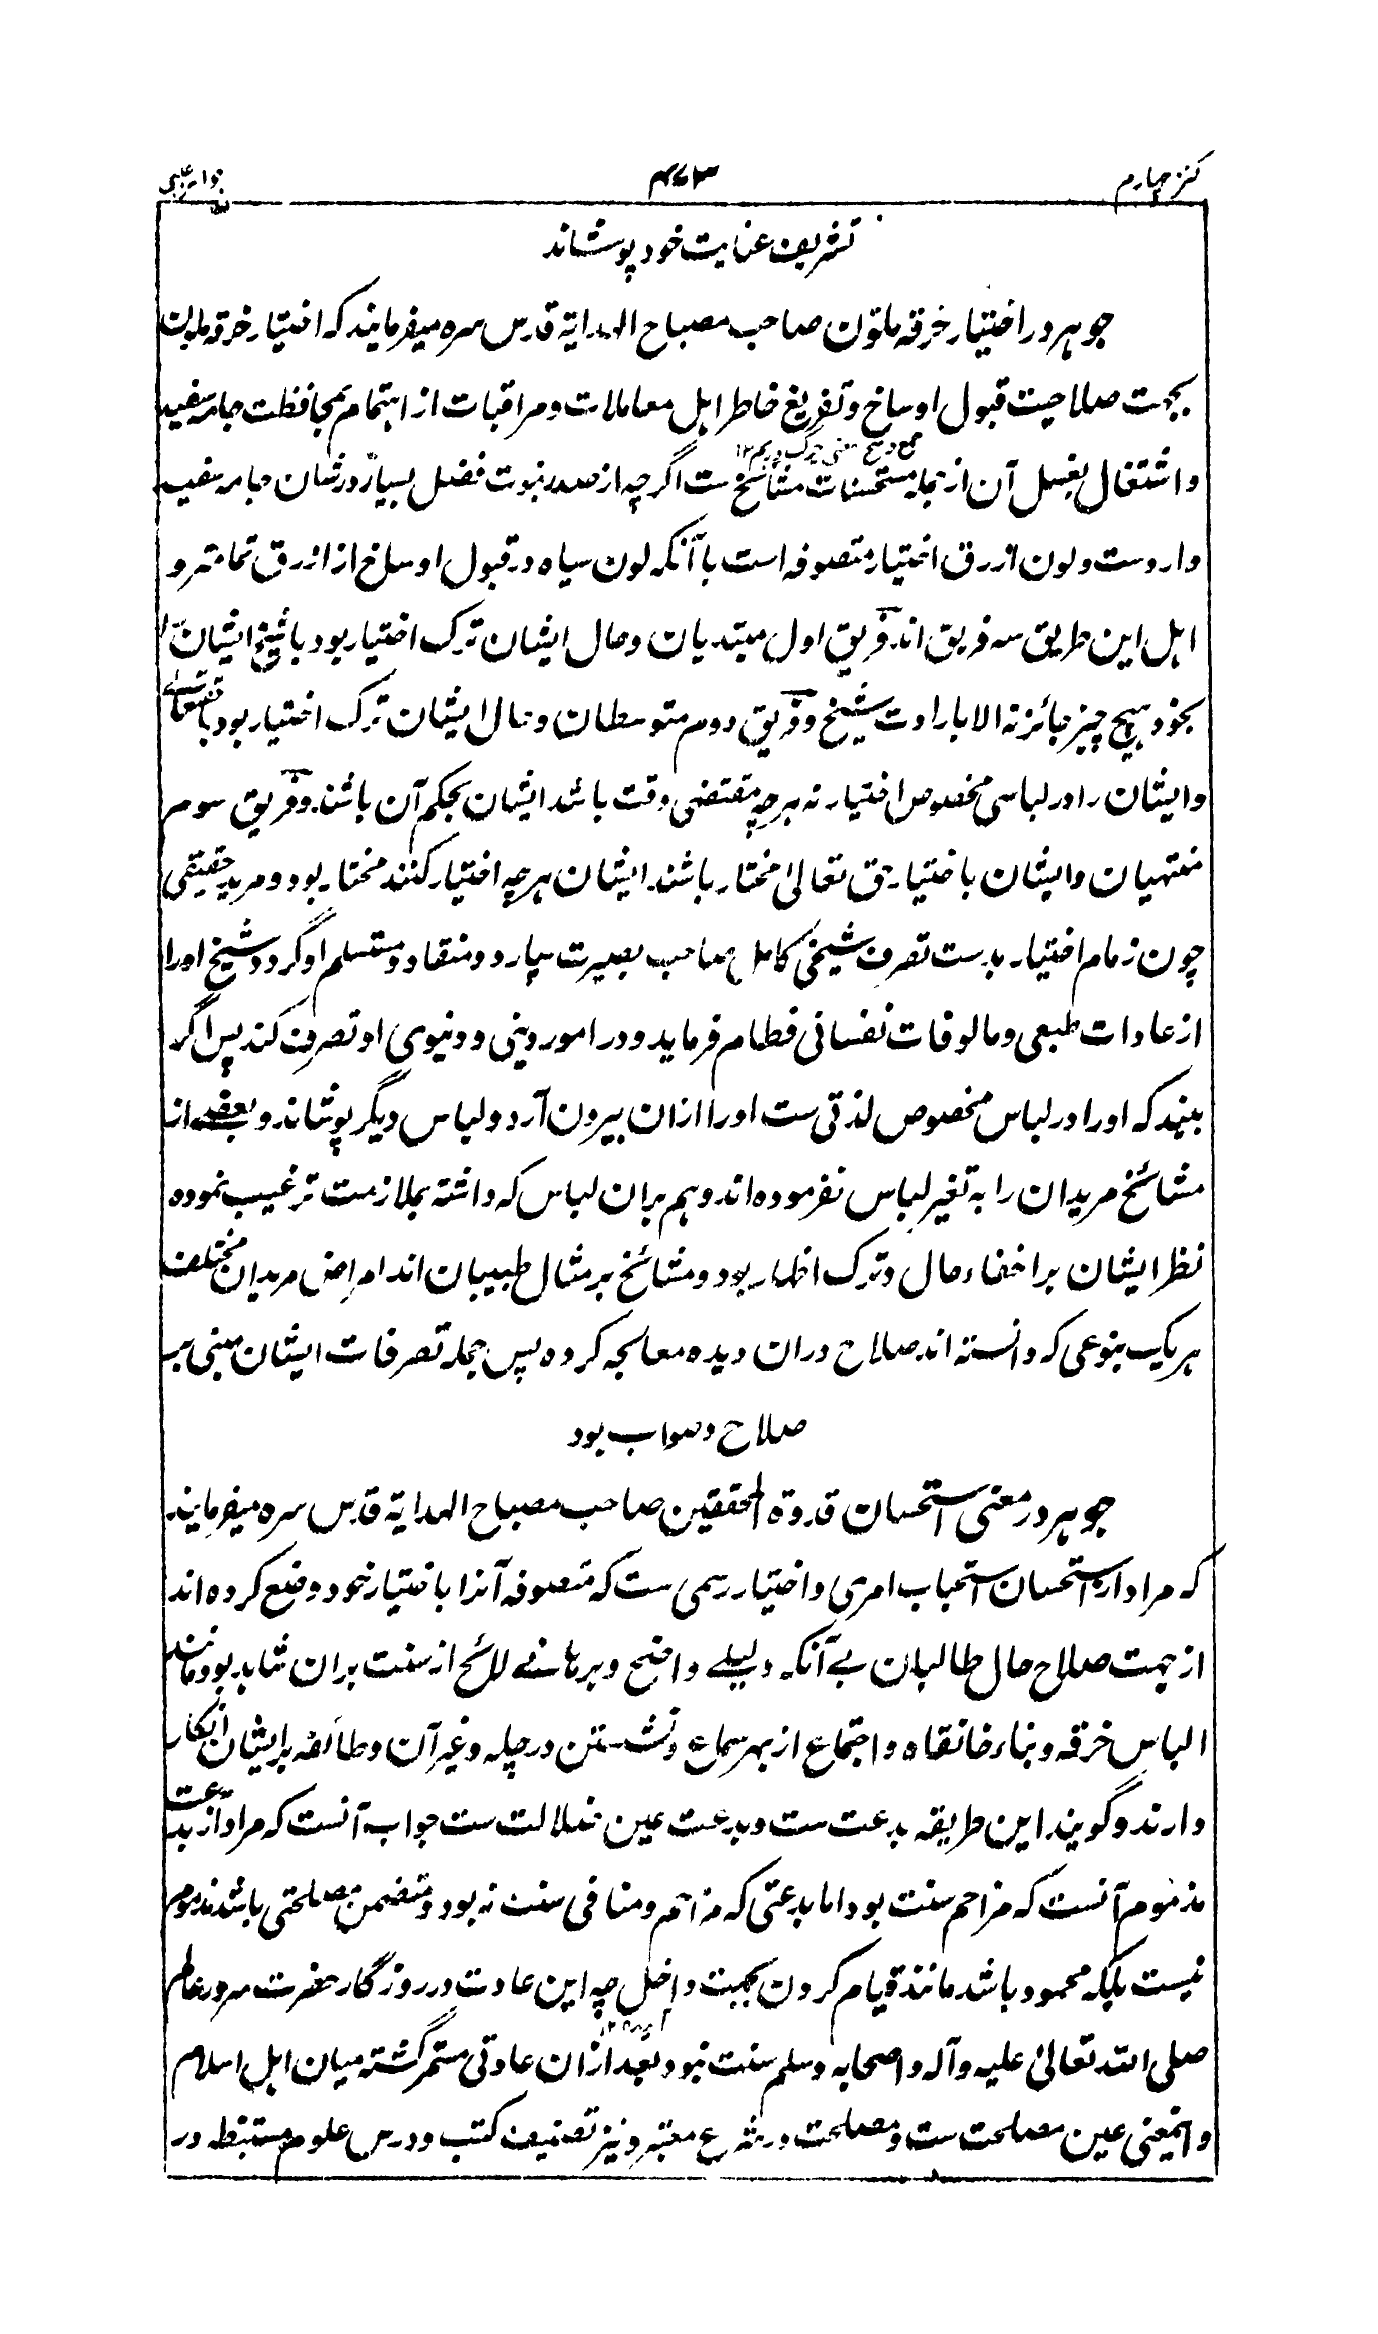 کنز چہارم
۴۷۳
تشریف عنایت خود پوشاند
جوہر در اختیار خرقہ ملون صاحب مصباح الہدایۃ قدس سرہ میفرمایند کہ اختیار خرقہ ملونت
بجہت صلاحیت قبول اوساخ و تفریغ خاطر اہل معاملات و مراقبات از اہتمام بمحافظت جامہ سفید
جمع وسخ بمعنی چرک و ریم ۱۲
و اشتغال بغسل آن از جملہ مستحسنات مشائخ ست اگرچہ از صدر نبوت فضل بسیار در شان جامہ سفید
وار دست و لون ازرق اختیار متصوفہ است با آنکہ لون سیاہ در قبول اوساخ از ازرق تمامتر و
اہل این طریق سہ فریق اند فریق اول مبتدیان و حال ایشان ترک اختیار بود با شیخ ایشان را
بخود ہیچ چیز جائز نہ الا بارادت شیخ و فریق دوم متوسطان و حال ایشان ترک اختیار بود با حقتعالے
و ایشان را در لباسی مخصوص اختیار نہ ہرچہ مقتضی وقت باشد ایشان بحکم آن باشند و فریق سوم
منتہیان و ایشان باختیار حق تعالیٰ مختار باشند ایشان ہرچہ اختیار کنند مختار بود و مرید حقیقی
چون زمام اختیار بدست تصرف شیخی کامل صاحب بصیرت سپارد و منقاد و مستسلم او گردد شیخ او را
از عادات طبعی و مالوفات نفسانی فطام فرماید و در امور دینی و دنیوی او تصرف کند پس اگر
بیند کہ او را در لباس مخصوص لذتی ست او را ازان بیرون آرد و لباس دیگر پوشاند و بعضے از
مشائخ مریدان را بہ تغیر لباس نفرمودہ اند و ہم بران لباس کہ داشتہ بملازمت ترغیب نمودہ
نظر ایشان بر اخفاء حال و ترک اظہار بود و مشائخ بر مثال طبیبان اند امراض مریدان مختلف
ہر یک بنوعی کہ دانستہ اند صلاح دران دیدہ معالجہ کردہ پس جملہ تصرفات ایشان مبنی بر
صلاح و صواب بود
جوہر در معنی استحسان قدوۃ المحققین صاحب مصباح الہدایۃ قدس سرہ میفرمایند
کہ مراد از استحسان استحباب امری و اختیار رسمی ست کہ متصوفہ آنرا باختیار خود وضع کردہ اند
از جہت صلاح حال طالبان بے آنکہ دلیلے واضح و برہانے لائح از سنت بران شاہد بود مانند
الباس خرقہ و بناء خانقاہ و اجتماع از بہر سماع و نشستن در چلہ و غیر آن و طائفہ بر ایشان انکار
دارند و گویند این طریقہ بدعت ست و بدعت عین ضلالت ست جواب آنست کہ مراد از بدعت
مذموم آنست کہ مزاحم سنت بود اما بدعتی کہ مزاحم و منافی سنت نہ بود و متضمن مصلحتی باشد مذموم
نیست بلکہ محمود باشد مانند قیام کردن بجہت داخل چہ این عادت در روزگار حضرت سرور عالم
صلی اللہ تعالیٰ علیہ و آلہ و اصحابہ وسلم سنت نبود بعد ازان عادتی مستمر گشتہ میان اہل اسلام
و اینمعنی عین مصلحت ست و مصلحت در شرع معتبر و نیز تصنیف کتب و درس علوم مستنبطہ در